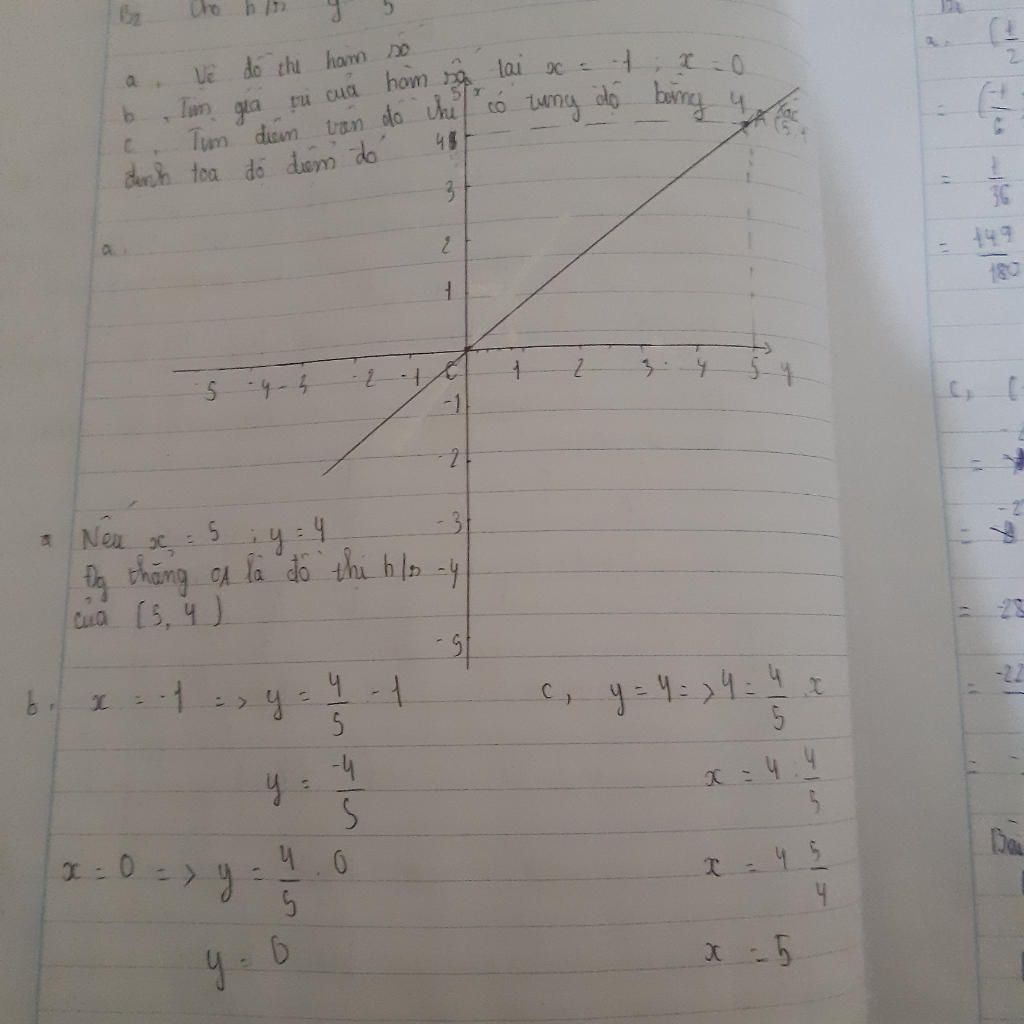 B2 Cho h/số y 5
a, Vẽ đồ thị hàm số
b, Tìm giá trị của hàm số tại x = -1 ; x = 0
c, Tìm điểm trên đồ thị có tung độ bằng 4
định tọa độ điểm đó
a.
5 x
4
3
2
1
5 -4 -3 -2 -1 1 2 3 4 5 y
A
-1
2
-3
-4
-5
Nếu x = 5 ; y = 4
Đg thẳng OA là đồ thị h/số
của (5, 4)
b. x = -1 => y = 4/5 . -1
y = -4/5
x = 0 => y = 4/5 . 0
y = 0
c, y = 4 => 4 = 4/5 . x
x = 4 . 4/5
x = 4 5/4
x = 5
a.
1/2
= -1/6
= 1/36
= 149/180
c,
=
=
= -28
= -22
=
Bài